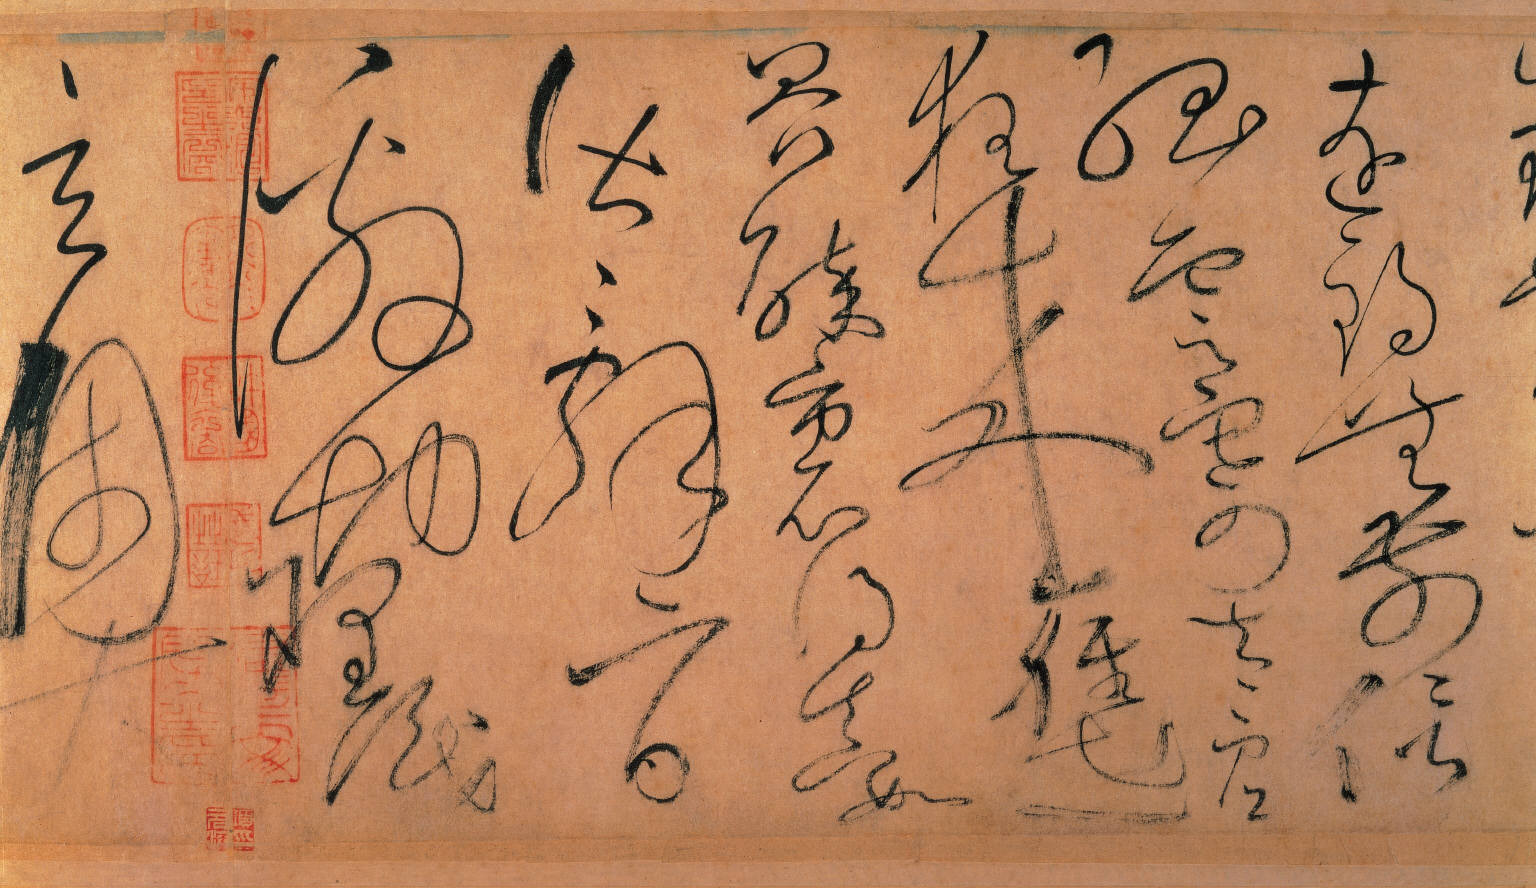 遠錫無前侶
孤雲寄太虛
狂來輕世
界醉裏得真如
皆辭旨
激切理識
玄奧